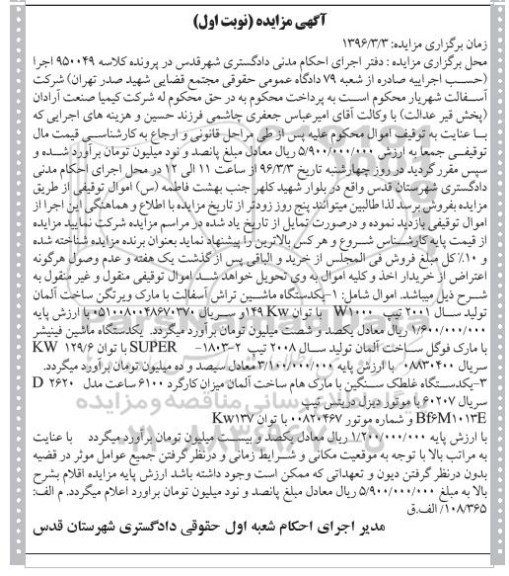 آگهی مزایده (نوبت اول)
زمان برگزاری مزایده: ۱۳۹۶/۳/۳
محل برگزاری مزایده : دفتر اجرای احکام مدنی دادگستری شهرقدس در پرونده کلاسه ۹۵۰۰۴۹ اجرا
(حسب اجراییه صادره از شعبه ۷۹ دادگاه عمومی حقوقی مجتمع قضایی شهید صدر تهران) شرکت
آسفالت شهریار محکوم است به پرداخت محکوم به در حق محکوم له شرکت کیمیا صنعت آرادان
(پخش قیر عدالت) با وکالت آقای امیرعباس جعفری چاشمی فرزند حسین و هزینه های اجرایی که
با عنایت به توقیف اموال محکوم علیه پس از طی مراحل قانونی و ارجاع به کارشناسی قیمت مال
توقیفی جمعا به ارزش ۵/۹۰۰/۰۰۰/۰۰۰ ریال معادل مبلغ پانصد و نود میلیون تومان برآورد شده و
سپس مقرر گردید در روز چهارشنبه تاریخ ۹۶/۳/۳ از ساعت ۱۱ الی ۱۲ در محل اجرای احکام مدنی
دادگستری شهرستان قدس واقع در بلوار شهید کلهر جنب بهشت فاطمه (س) اموال توقیفی از طریق
مزایده بفروش برسد لذا طالبین میتوانند پنج روز زودتر از تاریخ مزایده با اطلاع و هماهنگی این اجرا از
اموال توقیفی بازدید نموده و درصورت تمایل از تاریخ یاد شده در مراسم مزایده شرکت نمایند مزایده
از قیمت پایه کارشناس شروع و هر کس بالاترین را پیشنهاد نماید بعنوان برنده مزایده شناخته شده
و ۱۰٪ کل مبلغ فروش فی المجلس از خرید و الباقی پس از گذشت یک هفته و عدم وصول هرگونه
اعتراض از خریدار اخذ و کلیه اموال به وی تحویل خواهد شد اموال توقیفی منقول و غیر منقول به
شرح ذیل میباشد. اموال شامل: ۱-یکدستگاه ماشین تراش آسفالت با مارک ویرتگن ساخت آلمان
تولید سال ۲۰۰۱ تیپ W۱۰۰۰ با توان ۱۴۹ Kw و سریال ۰۵۱۰۰۸۰۰۴۸۶۷۰۳۷۰ با ارزش پایه
۱/۶۰۰/۰۰۰/۰۰۰ ریال معادل یکصد و شصت میلیون تومان برآورد میگردد. یکدستگاه ماشین فینیشر
با مارک فوگل ساخت آلمان تولید سال ۲۰۰۸ تیپ SUPER -۱۸۰۳-۲ با توان ۱۲۹/۶ KW
سریال ۰۸۸۳۰۴۰۰ با ارزش پایه ۳/۱۰۰/۰۰۰/۰۰۰ معادل سیصد و ده میلیون تومان برآورد میگردد.
۳-یکدستگاه غلطک سنگین با مارک هام ساخت آلمان میزان کارکرد ۶۱۰۰ ساعت مدل ۲۶۲۰ D
سریال ۶۰۲۰۷ با موتور دیزل دریفس تیپ
Bf۶M۱۰۱۳E و شماره موتور ۰۰۸۲۰۴۶۷ با توان Kw۱۳۷
با ارزش پایه ۱/۲۰۰/۰۰۰/۰۰۰ ریال معادل یکصد و بیست میلیون تومان برآورد میگردد با عنایت
به مراتب بالا با توجه به موقعیت مکانی و شرایط زمانی و درنظر گرفتن جمیع عوامل موثر در قضیه
بدون درنظر گرفتن دیون و تعهداتی که ممکن است وجود داشته باشد ارزش پایه مزایده اقلام بشرح
بالا به مبلغ ۵/۹۰۰/۰۰۰/۰۰۰ ریال معادل مبلغ پانصد و نود میلیون تومان براورد اعلام میگردد. م الف:
۱۰۸/۳۶۵/ الف.ق
مدیر اجرای احکام شعبه اول حقوقی دادگستری شهرستان قدس